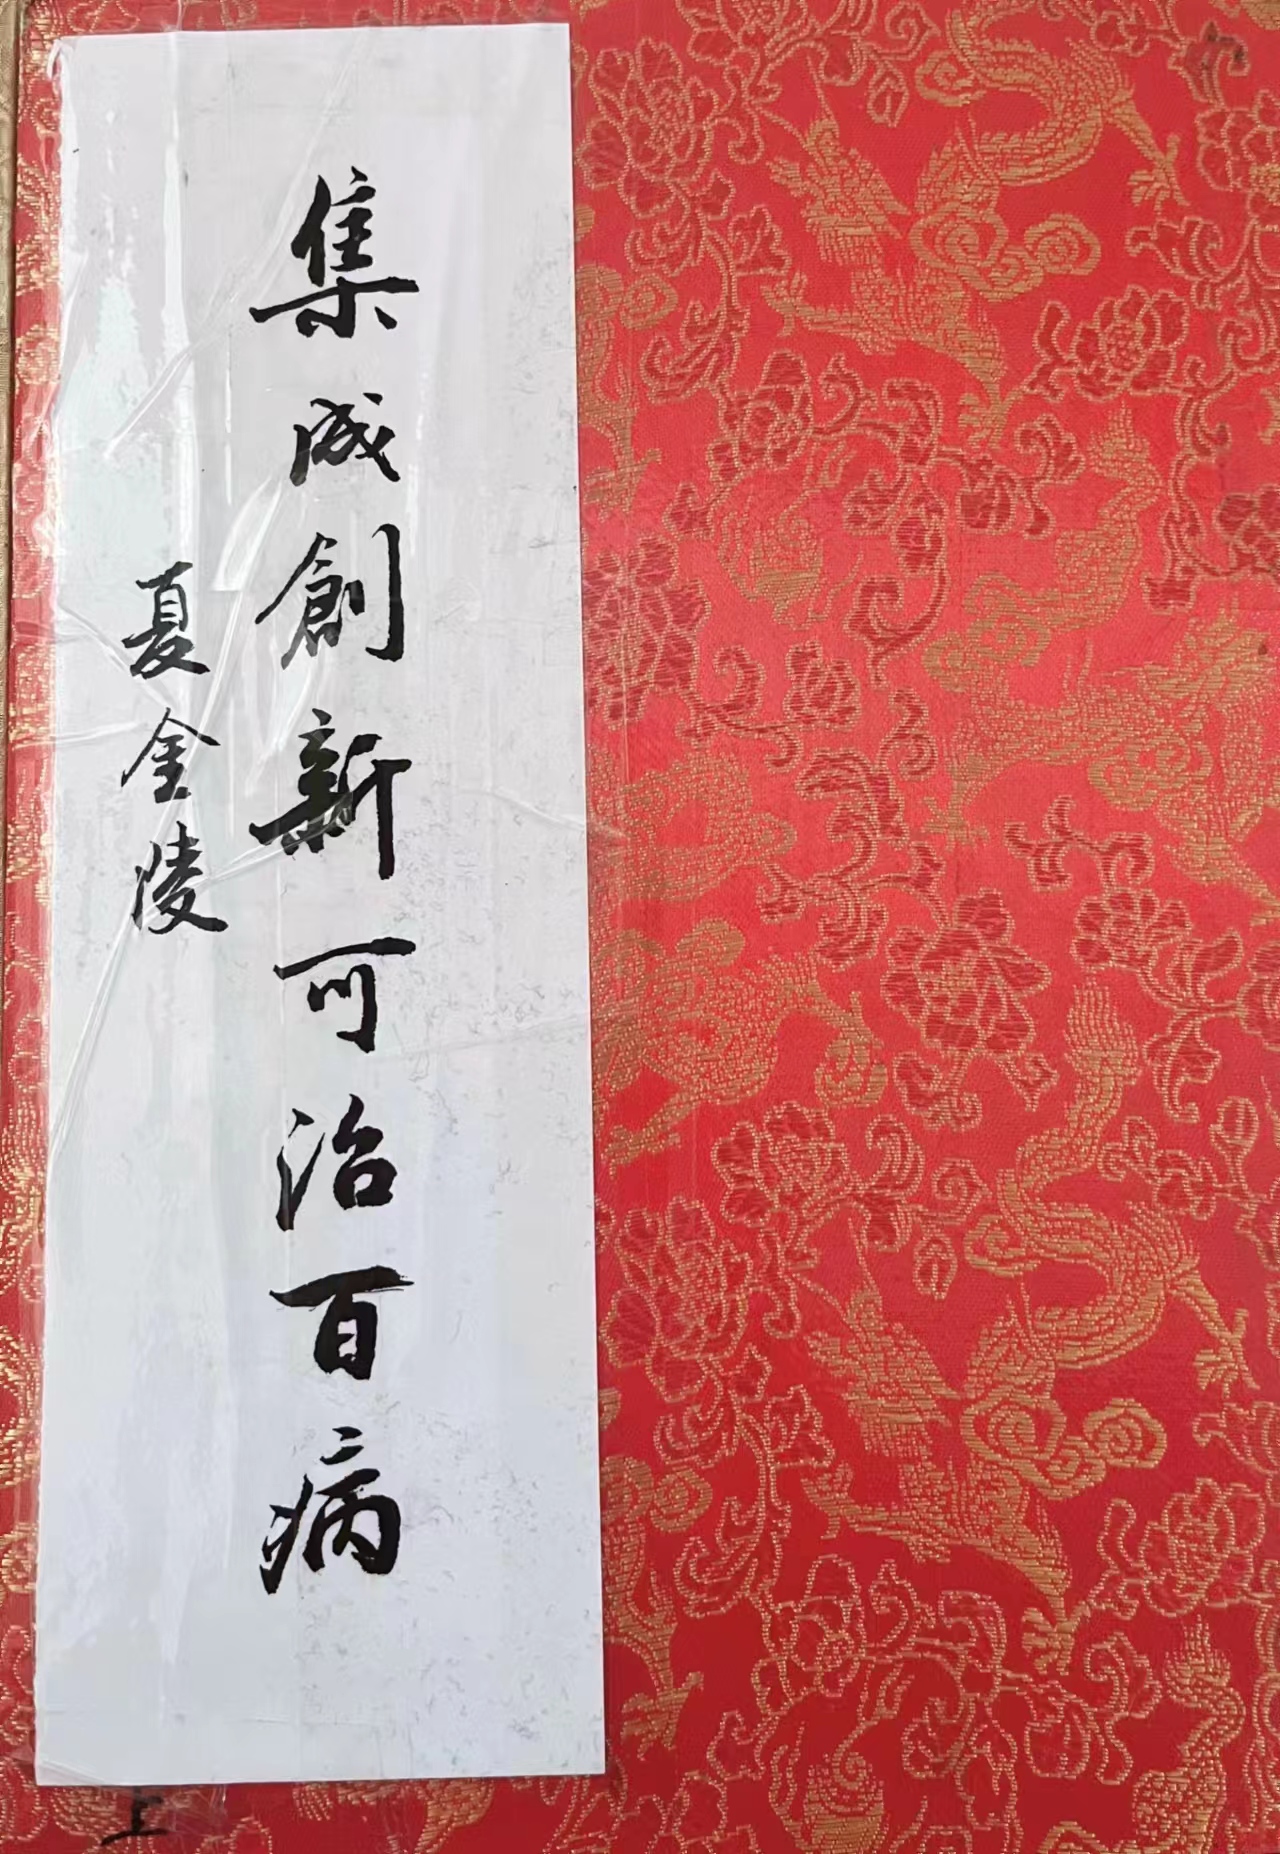 集成創新可治百病
夏金陵
上